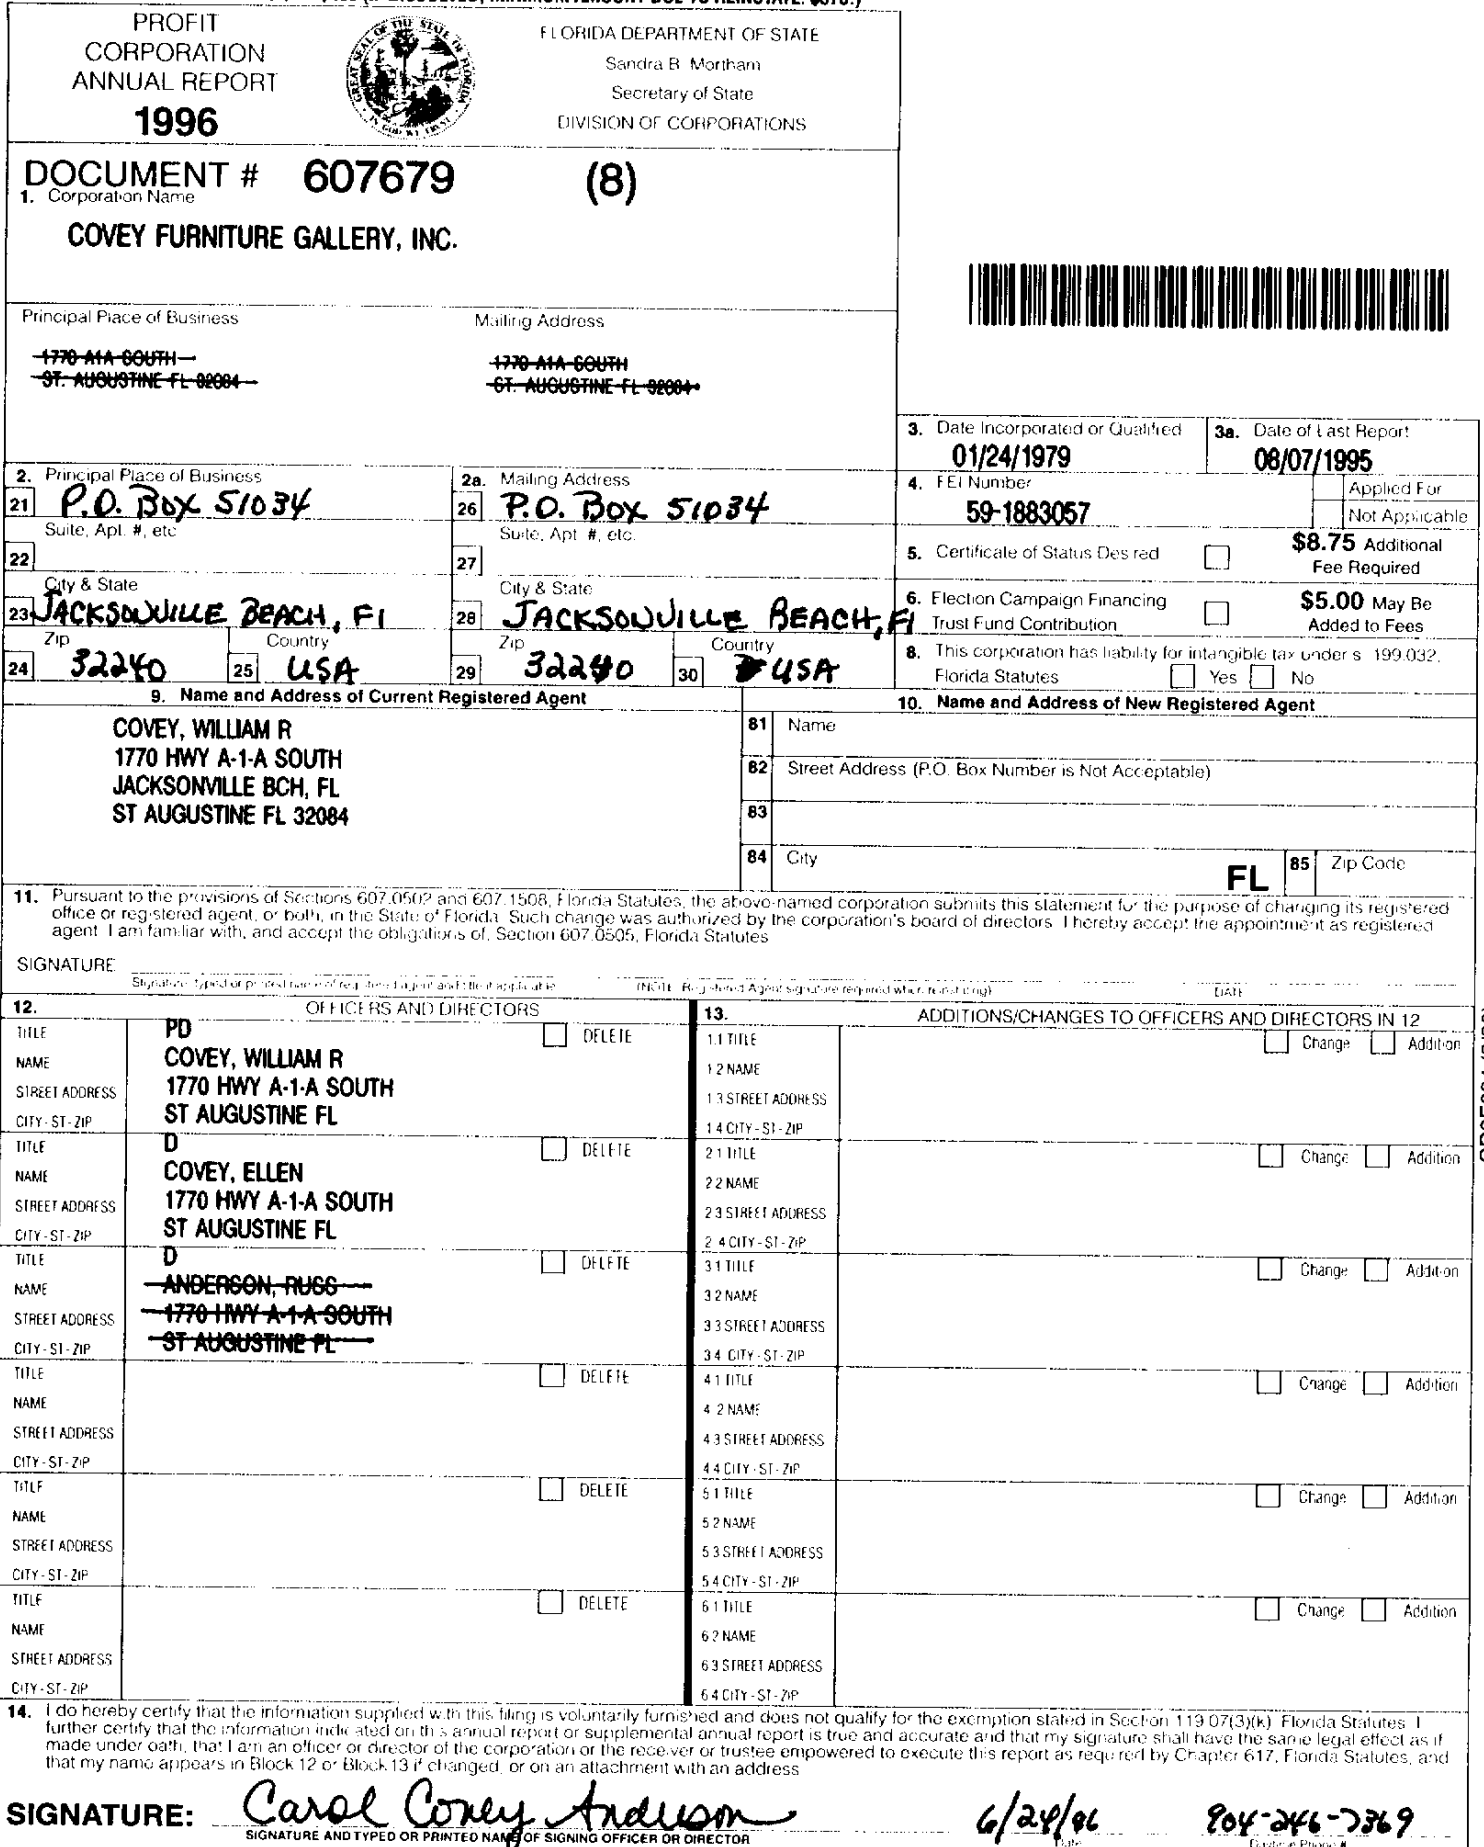 PROFIT
CORPORATION
ANNUAL REPORT
1996
FLORIDA DEPARTMENT OF STATE
Sandra B. Mortham
Secretary of State
DIVISION OF CORPORATIONS
DOCUMENT # 607679 (8)
1. Corporation Name
COVEY FURNITURE GALLERY, INC.
Principal Place of Business
Mailing Address
1770 A1A SOUTH
ST. AUGUSTINE FL 32084
1770 A1A SOUTH
ST. AUGUSTINE FL 32084
3. Date Incorporated or Qualified
01/24/1979
3a. Date of Last Report
08/07/1995
2. Principal Place of Business
21 P.O. Box 51034
2a. Mailing Address
26 P.O. Box 51034
4. FEI Number
59-1883057
Applied For
Not Applicable
Suite, Apt. #, etc.
22
Suite, Apt. #, etc.
27
5. Certificate of Status Desired
$8.75 Additional
Fee Required
City & State
23 JACKSONVILLE BEACH, Fl
City & State
28 JACKSONVILLE BEACH, Fl
6. Election Campaign Financing
Trust Fund Contribution
$5.00 May Be
Added to Fees
Zip
24 32240
Country
25 USA
Zip
29 32240
Country
30 USA
8. This corporation has liability for intangible tax under s. 199.032,
Florida Statutes Yes No
9. Name and Address of Current Registered Agent
COVEY, WILLIAM R
1770 HWY A-1-A SOUTH
JACKSONVILLE BCH, FL
ST AUGUSTINE FL 32084
10. Name and Address of New Registered Agent
81 Name
82 Street Address (P.O. Box Number is Not Acceptable)
83
84 City
FL 85 Zip Code
11. Pursuant to the provisions of Sections 607.0502 and 607.1508, Florida Statutes, the above-named corporation submits this statement for the purpose of changing its registered
office or registered agent, or both, in the State of Florida. Such change was authorized by the corporation's board of directors. I hereby accept the appointment as registered
agent. I am familiar with, and accept the obligations of, Section 607.0505, Florida Statutes
SIGNATURE
Signature, typed or printed name of registered agent and title if applicable
(NOTE: Registered Agent signature required when reinstating)
DATE
12. OFFICERS AND DIRECTORS
TITLE PD DELETE
NAME COVEY, WILLIAM R
STREET ADDRESS 1770 HWY A-1-A SOUTH
CITY-ST-ZIP ST AUGUSTINE FL
TITLE D DELETE
NAME COVEY, ELLEN
STREET ADDRESS 1770 HWY A-1-A SOUTH
CITY-ST-ZIP ST AUGUSTINE FL
TITLE D DELETE
NAME ANDERSON, RUSS
STREET ADDRESS 1770 HWY A-1-A SOUTH
CITY-ST-ZIP ST AUGUSTINE FL
TITLE DELETE
NAME
STREET ADDRESS
CITY-ST-ZIP
TITLE DELETE
NAME
STREET ADDRESS
CITY-ST-ZIP
TITLE DELETE
NAME
STREET ADDRESS
CITY-ST-ZIP
13. ADDITIONS/CHANGES TO OFFICERS AND DIRECTORS IN 12
1.1 TITLE Change Addition
1.2 NAME
1.3 STREET ADDRESS
1.4 CITY-ST-ZIP
2.1 TITLE Change Addition
2.2 NAME
2.3 STREET ADDRESS
2.4 CITY-ST-ZIP
3.1 TITLE Change Addition
3.2 NAME
3.3 STREET ADDRESS
3.4 CITY-ST-ZIP
4.1 TITLE Change Addition
4.2 NAME
4.3 STREET ADDRESS
4.4 CITY-ST-ZIP
5.1 TITLE Change Addition
5.2 NAME
5.3 STREET ADDRESS
5.4 CITY-ST-ZIP
6.1 TITLE Change Addition
6.2 NAME
6.3 STREET ADDRESS
6.4 CITY-ST-ZIP
14. I do hereby certify that the information supplied with this filing is voluntarily furnished and does not qualify for the exemption stated in Section 119.07(3)(k), Florida Statutes. I
further certify that the information indicated on this annual report or supplemental annual report is true and accurate and that my signature shall have the same legal effect as if
made under oath, that I am an officer or director of the corporation or the receiver or trustee empowered to execute this report as required by Chapter 617, Florida Statutes, and
that my name appears in Block 12 or Block 13 if changed, or on an attachment with an address
SIGNATURE: Carol Covey Anderson 6/24/96 904-246-7369
SIGNATURE AND TYPED OR PRINTED NAME OF SIGNING OFFICER OR DIRECTOR
Date
Daytime Phone #